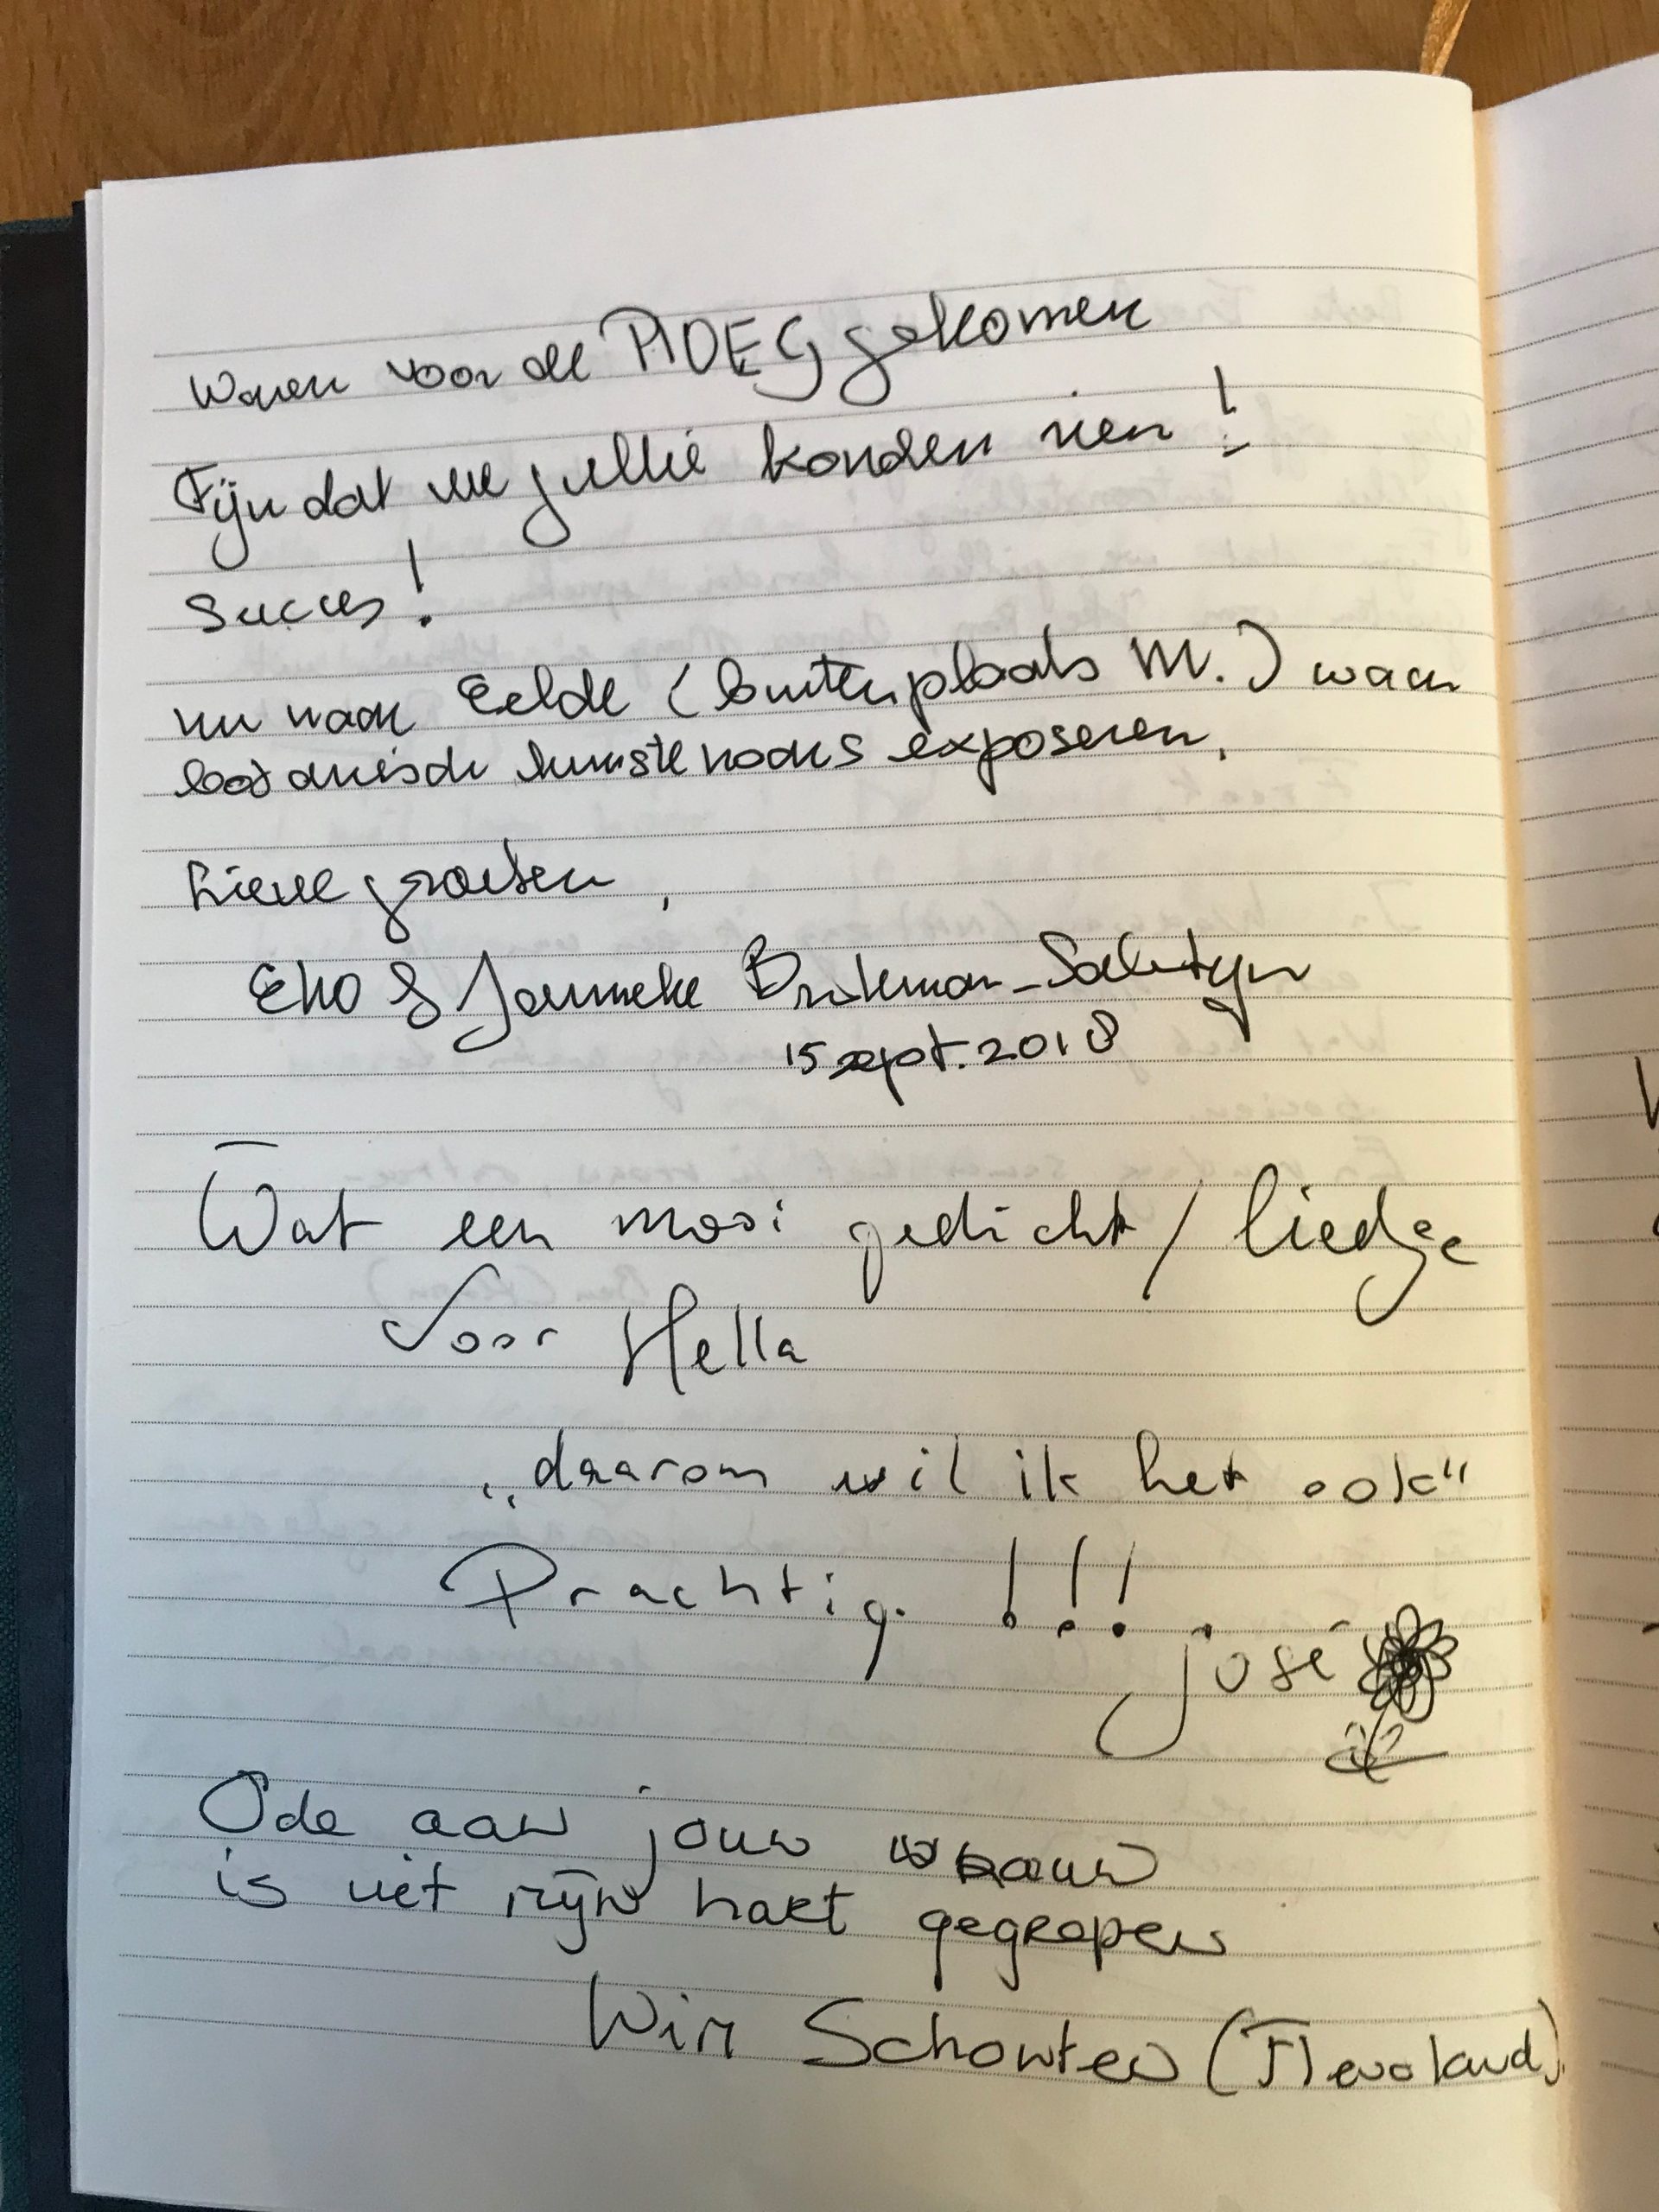 Waren voor de PIDEG gekomen
Fijn dat we jullie konden zien!
Succes!
nu naar Eelde (buitenplaats M.) waar
botanisch kunstenaars exposeren.
Lieve groeten,
Eko & Janneke Brinkman-Salentijn
15 sept. 2018
Wat een mooi gedicht/liedje
Voor Hella
„daarom wil ik het ook"
Prachtig!!!
José
Ode aan jouw vrouw
is uit mijn hart gegrepen
Wim Schouten (Flevoland)